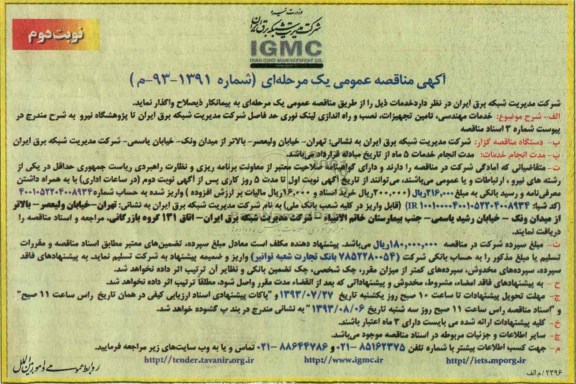 وزارت نیرو
شرکت مدیریت شبکه برق ایران
IGMC
IRAN GRID MANAGEMENT CO.
نوبت دوم
آگهی مناقصه عمومی یک مرحله‌ای (شماره ۱۳۹۱-۹۳-م)
شرکت مدیریت شبکه برق ایران در نظر دارد خدمات ذیل را از طریق مناقصه عمومی یک مرحله‌ای به پیمانکار ذیصلاح واگذار نماید.
الف- شرح موضوع: خدمات مهندسی، تامین تجهیزات، نصب و راه اندازی لینک نوری حد فاصل شرکت مدیریت شبکه برق ایران تا پژوهشگاه نیرو به شرح مندرج در
پیوست شماره ۳ اسناد مناقصه
ب- دستگاه مناقصه گزار: شرکت مدیریت شبکه برق ایران به نشانی: تهران- خیابان ولیعصر- بالاتر از میدان ونک- خیابان یاسمی- شرکت مدیریت شبکه برق ایران
پ- مدت انجام خدمات: مدت انجام خدمات ۵ ماه از تاریخ مبادله قرارداد می‌باشد.
ت- متقاضیانی که آمادگی شرکت در مناقصه را دارند و دارای گواهینامه صلاحیت معتبر از معاونت برنامه ریزی و نظارت راهبردی ریاست جمهوری حداقل در یکی از
رشته های نیرو، ارتباطات و یا عمومی می‌باشند، می‌توانند از تاریخ آگهی نوبت اول تا مدت ۵ روز کاری پس از آگهی نوبت دوم (در ساعات اداری) با به همراه داشتن
معرفی‌نامه و رسید بانکی به مبلغ ۲۱۶,۰۰۰ ریال (۲۰۰,۰۰۰ ریال خرید اسناد و ۱۶,۰۰۰ ریال مالیات بر ارزش افزوده) واریز شده به حساب شماره ۴۰۰۱۰۵۲۲۰۴۰۰۸۹۳۴
(کد شبا: IR ۱۰۰۱۰۰۰۰۴۰۰۱۰۵۲۲۰۴۰۰۸۹۳۴) (قابل واریز در کلیه شعب بانک ملی) به نام شرکت مدیریت شبکه برق ایران به نشانی: تهران- خیابان ولیعصر- بالاتر
از میدان ونک - خیابان رشید یاسمی- جنب بیمارستان خاتم الانبیاء - شرکت مدیریت شبکه برق ایران- اتاق ۱۳۱ گروه بازرگانی، مراجعه و اسناد مناقصه را
دریافت نمایند.
ث- مبلغ سپرده شرکت در مناقصه ۱۸۰,۰۰۰,۰۰۰ ریال می‌باشد. پیشنهاد دهنده مکلف است معادل مبلغ سپرده، تضمین‌های معتبر مطابق اسناد مناقصه و مقررات
تسلیم و یا مبلغ مذکور را به حساب بانکی شرکت (۷۸۵۲۲۸۰۰۵۴ بانک تجارت شعبه توانیر) واریز و ضمیمه پیشنهاد به شرکت تسلیم نماید. به پیشنهادهای فاقد
سپرده، سپرده‌های مخدوش، سپرده‌های کمتر از میزان مقرر، چک شخصی، چک تضمین بانکی و نظایر آن ترتیب اثر داده نخواهد شد.
ج - به پیشنهادهای فاقد امضاء، مشروط، مخدوش و پیشنهاداتی که بعد از انقضاء مدت مقرر واصل شود، مطلقا ترتیب اثر داده نخواهد شد.
چ- مهلت تحویل پیشنهادات تا ساعت ۱۰ صبح روز یکشنبه تاریخ ۱۳۹۳/۰۷/۲۷ و "پاکات پیشنهادی اسناد ارزیابی کیفی در همان تاریخ راس ساعت ۱۱ صبح"
و "اسناد مناقصه راس ساعت ۱۱ صبح روز سه شنبه تاریخ ۱۳۹۳/۰۸/۰۶" به نشانی مندرج در بند ب گشوده خواهد شد.
ح- کلیه پیشنهادات ارائه شده می بایست دارای ۳ ماه اعتبار باشند.
خ- سایر اطلاعات و جزئیات مربوطه در اسناد مناقصه موجود می‌باشد.
د- جهت کسب اطلاعات بیشتر با شماره تلفن ۸۵۱۶۲۳۷۵-۰۲۱ و ۸۸۶۴۴۷۸۶-۰۲۱ تماس و یا به وب سایت‌های زیر مراجعه فرمایید.
http//iets.mporg.ir http//www.igmc.ir http//tender.tavanir.org.ir
روابط عمومی و امور بین الملل
۲۲۹۶/م الف